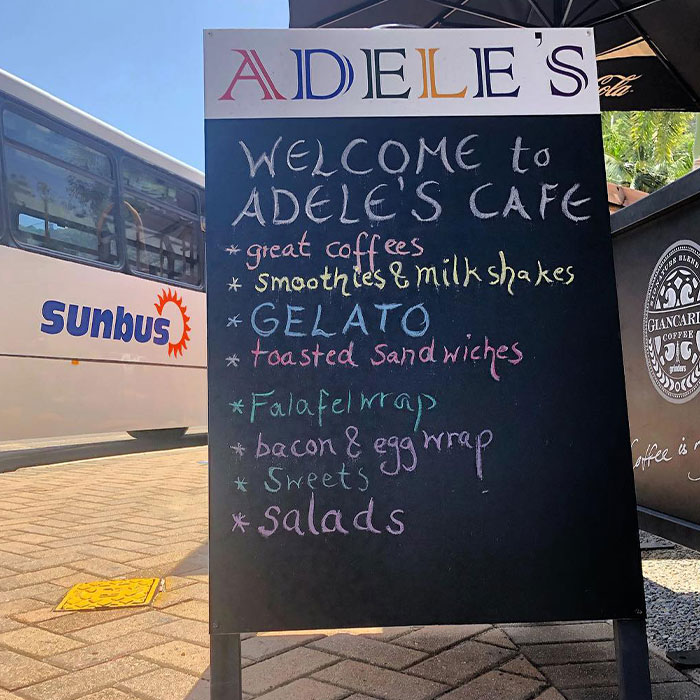 ADELE'S
WELCOME to
ADELE'S CAFE
* great coffees
* smoothies & milkshakes
* GELATO
* toasted sandwiches
* Falafel wrap
* bacon & egg wrap
* Sweets
* Salads
sunbus
Cola
GIANCARL
COFFEE
grinders
Coffee is